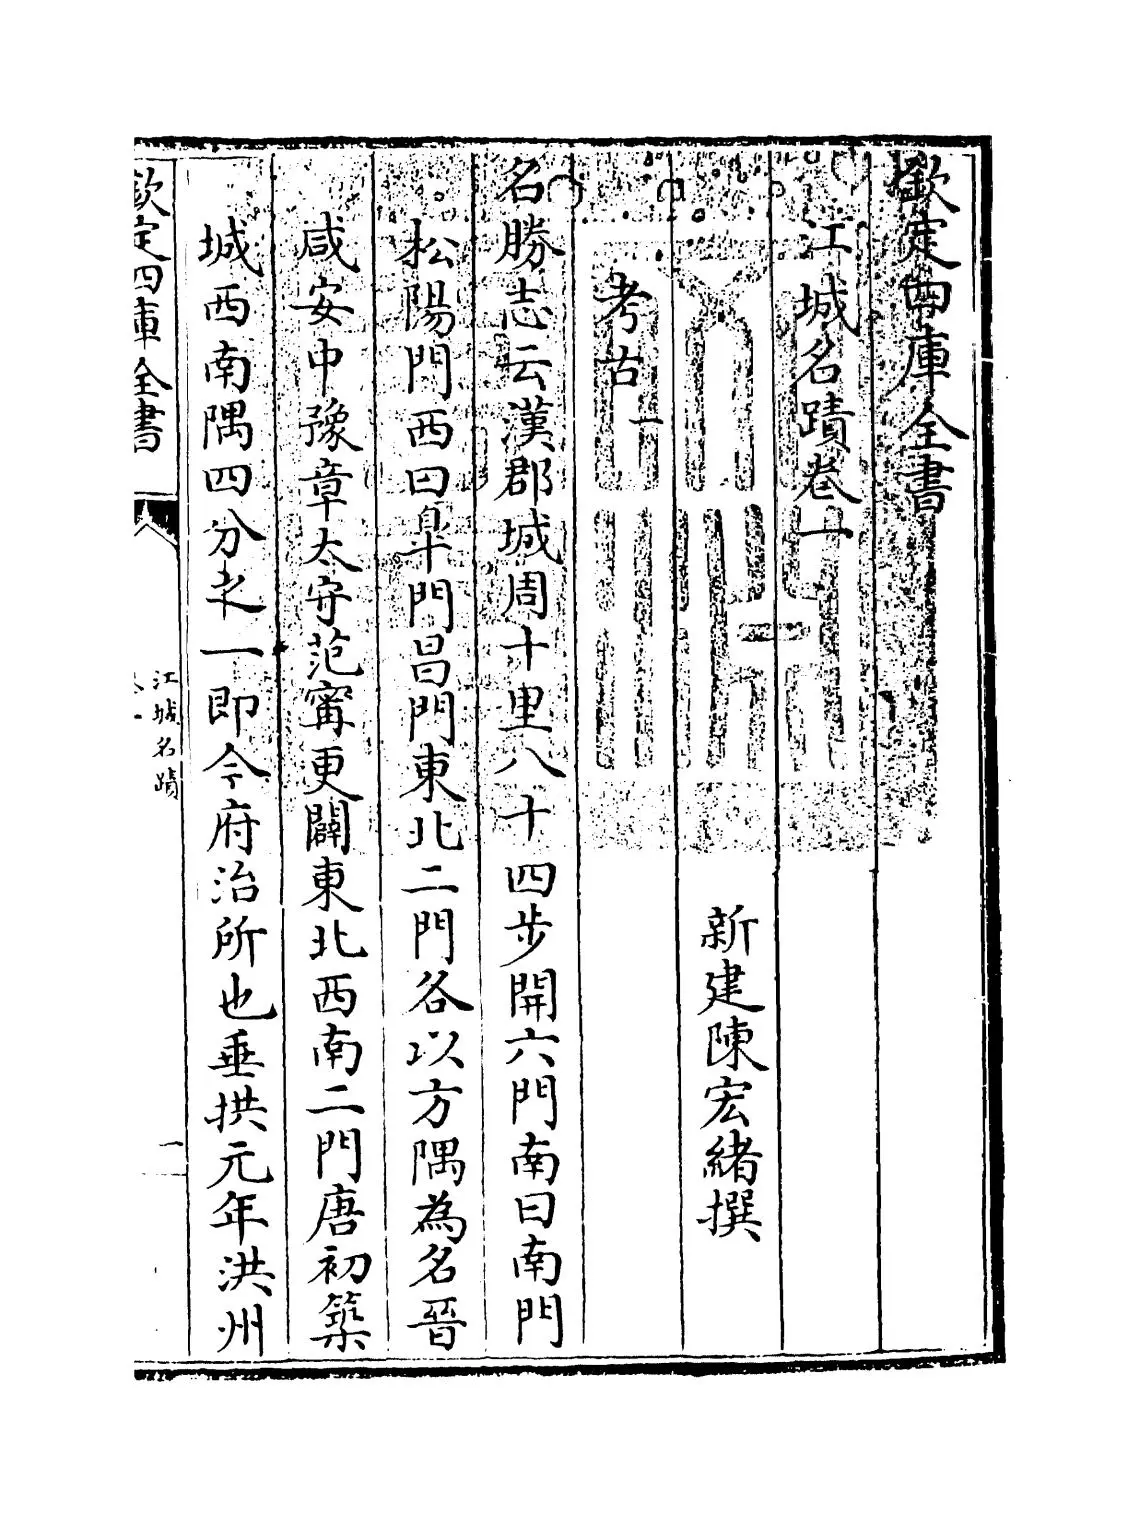 欽定四庫全書
江城名蹟卷一
新建陳宏緒撰
考古一
名勝志云漢郡城周十里八十四步開六門南曰南門
松陽門西曰臯門昌門東北二門各以方隅為名晉
咸安中豫章太守范甯更闢東北西南二門唐初築
城西南隅四分之一即今府治所也垂拱元年洪州
欽定四庫全書
江城名蹟
一